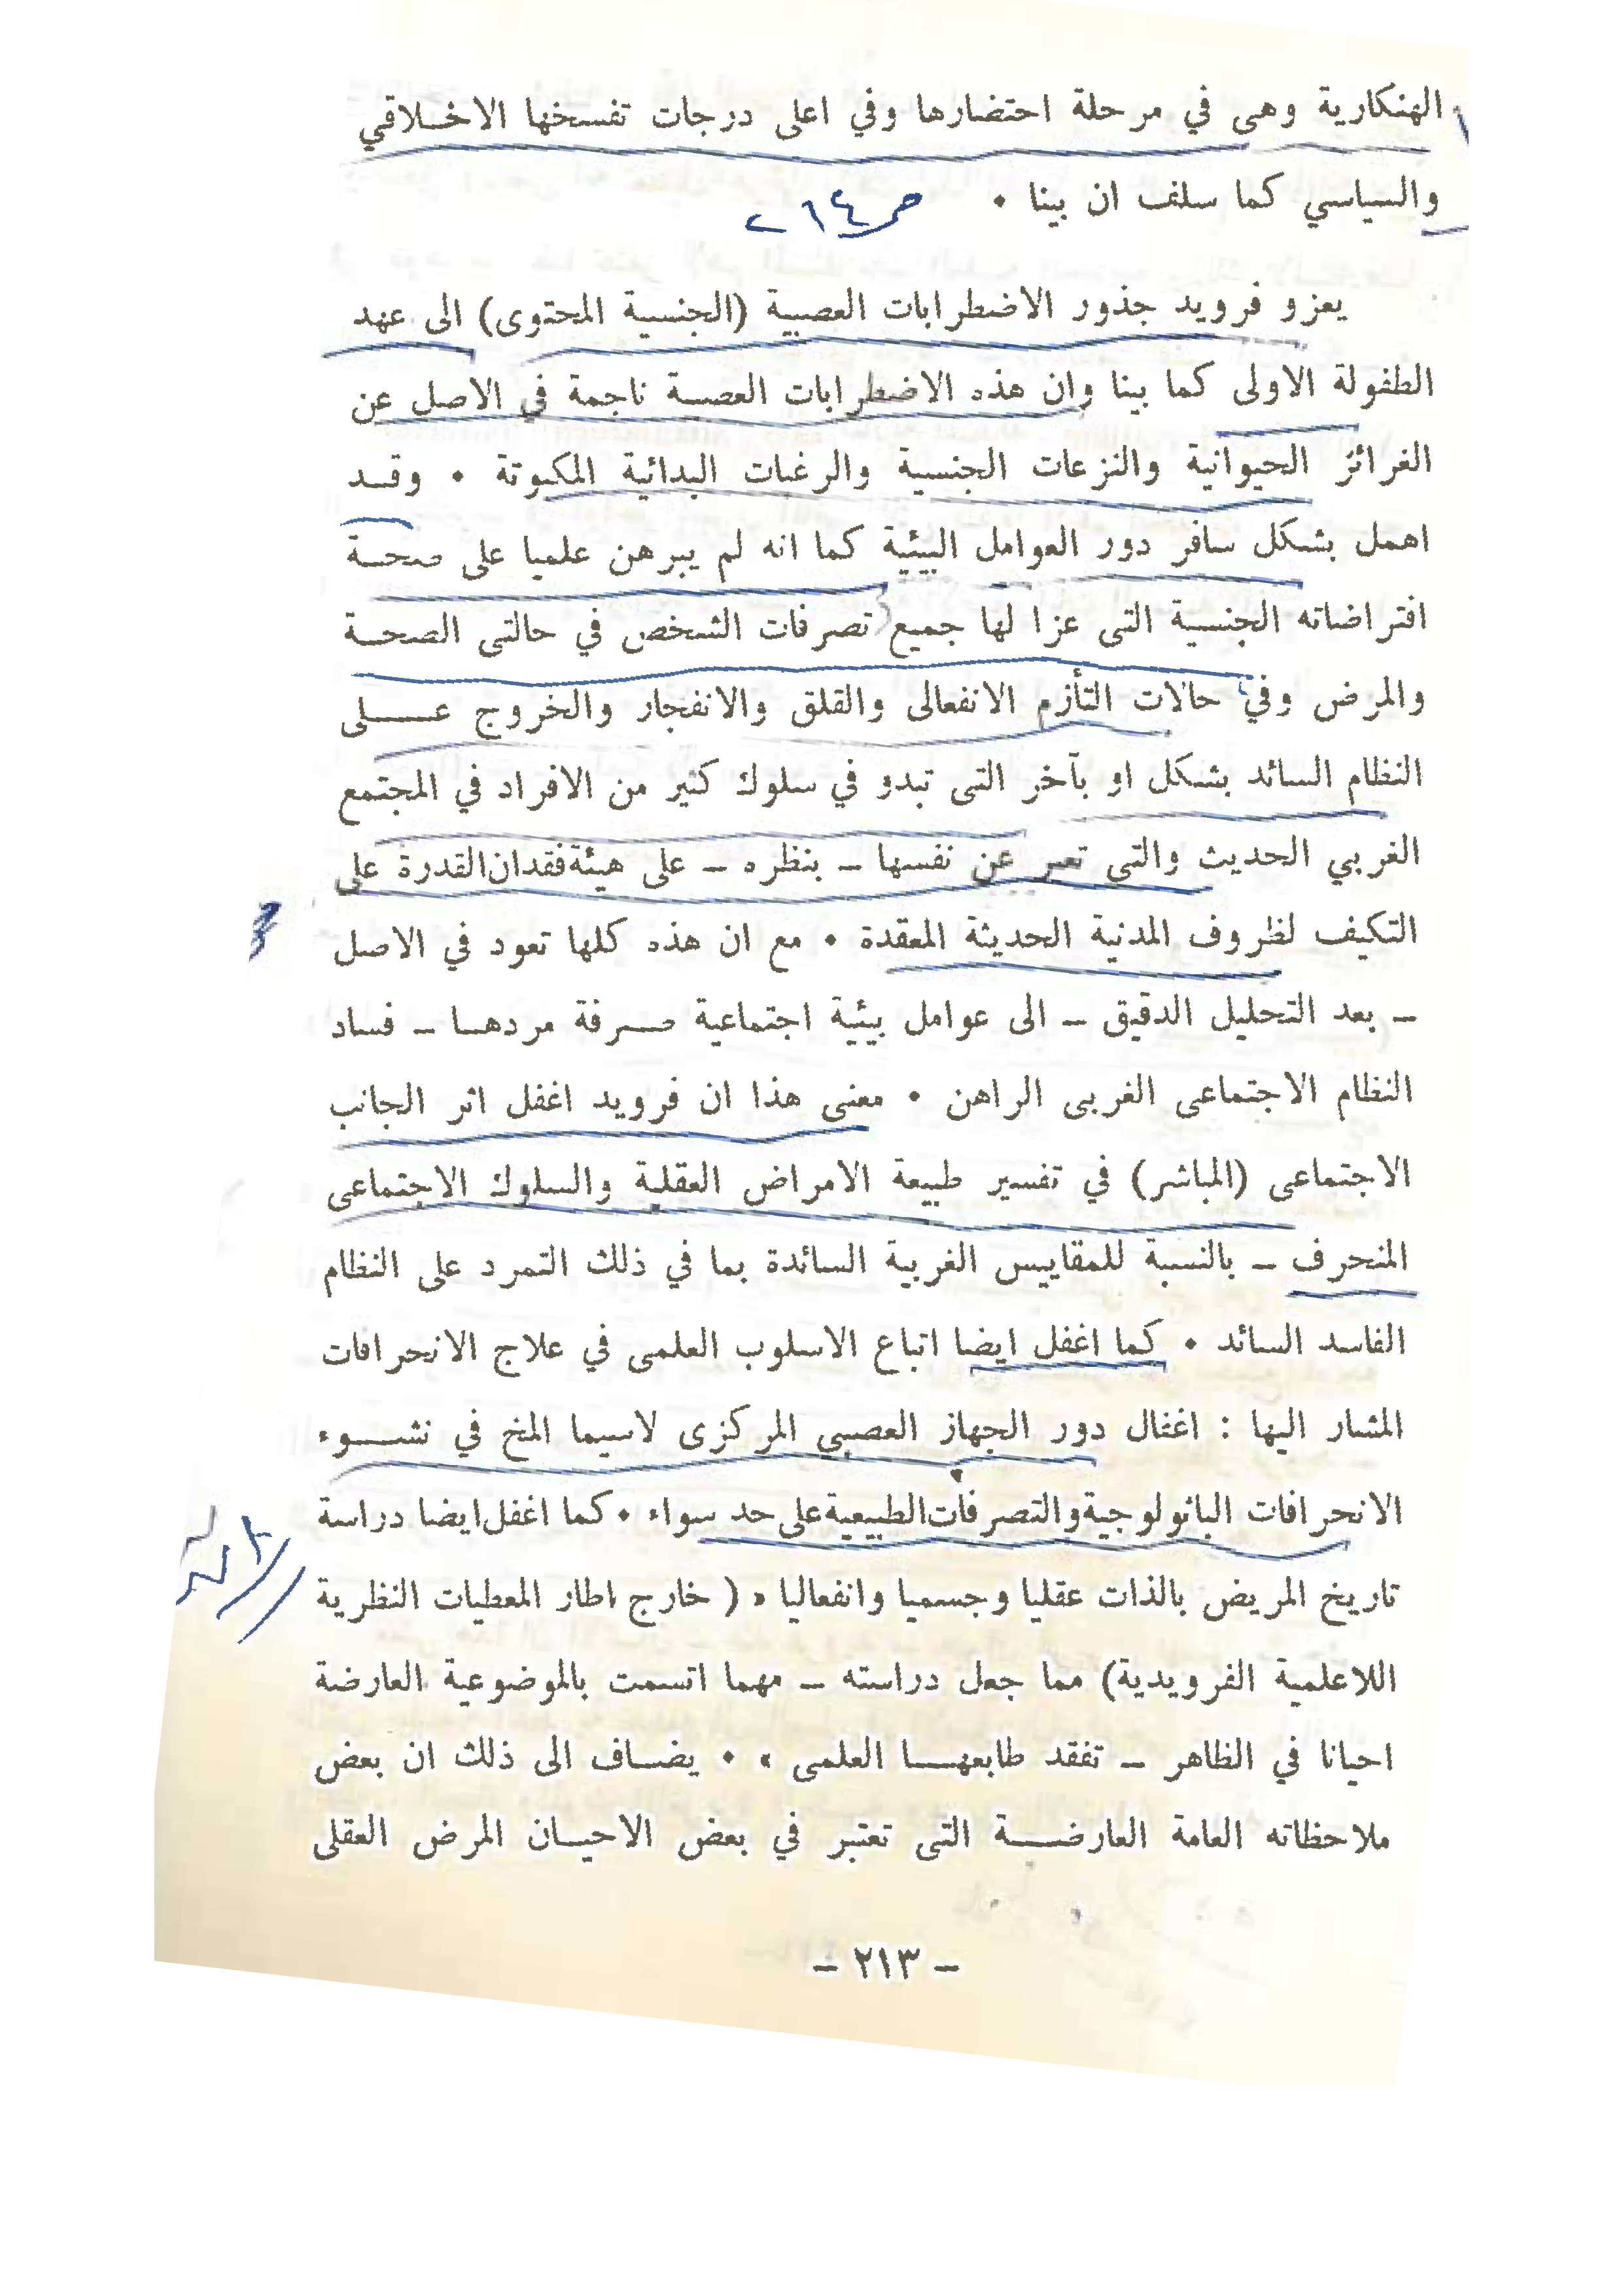 الهنكارية وهى في مرحلة احتضارها وفي اعلى درجات تفسخها الاخــلاقي
والسياسي كما سلف ان بينا •
ص ٢١٤
يعزو فرويد جذور الاضطرابات العصبية (الجنسية المحتوى) الى عهد
الطفولة الاولى كما بينا وان هذه الاضطرابات العصبية ناجمة في الاصل عن
الغرائز الحيوانية والنزعات الجنسية والرغبات البدائية المكبوتة • وقــد
اهمل بشكل سافر دور العوامل البيئية كما انه لم يبرهن علميا على صحــة
افتراضاته الجنسية التى عزا لها جميع تصرفات الشخص في حالتى الصحــة
والمرض وفي حالات التأزم الانفعالى والقلق والانفجار والخروج عــــلى
النظام السائد بشكل او بآخر التى تبدو في سلوك كثير من الافراد في المجتمع
الغربي الحديث والتى تعبر عن نفسها – بنظره – على هيئة فقدان القدرة على
التكيف لظروف المدنية الحديثة المعقدة • مع ان هذه كلها تعود في الاصل
– بعد التحليل الدقيق – الى عوامل بيئية اجتماعية صــرفة مردهــا – فساد
النظام الاجتماعى الغربى الراهن • معنى هذا ان فرويد اغفل اثر الجانب
الاجتماعى (المباشر) في تفسير طبيعة الامراض العقلية والسلوك الاجتماعى
المنحرف – بالنسبة للمقاييس الغربية السائدة بما في ذلك التمرد على النظام
الفاسد السائد • كما اغفل ايضا اتباع الاسلوب العلمى في علاج الانحرافات
المشار اليها : اغفال دور الجهاز العصبي المركزى لاسيما المخ في نشـــوء
الانحرافات الباثولوجية والتصرفات الطبيعية على حد سواء • كما اغفل ايضا دراسة
تاريخ المريض بالذات عقليا وجسميا وانفعاليا « ( خارج اطار المعطيات النظرية
اللاعلمية الفرويدية) مما جعل دراسته – مهما اتسمت بالموضوعية العارضة
احيانا في الظاهر – تفقد طابعهــا العلمى » • يضــاف الى ذلك ان بعض
ملاحظاته العامة العارضــة التى تعتبر في بعض الاحيــان المرض العقلى
– ٢١٣ –